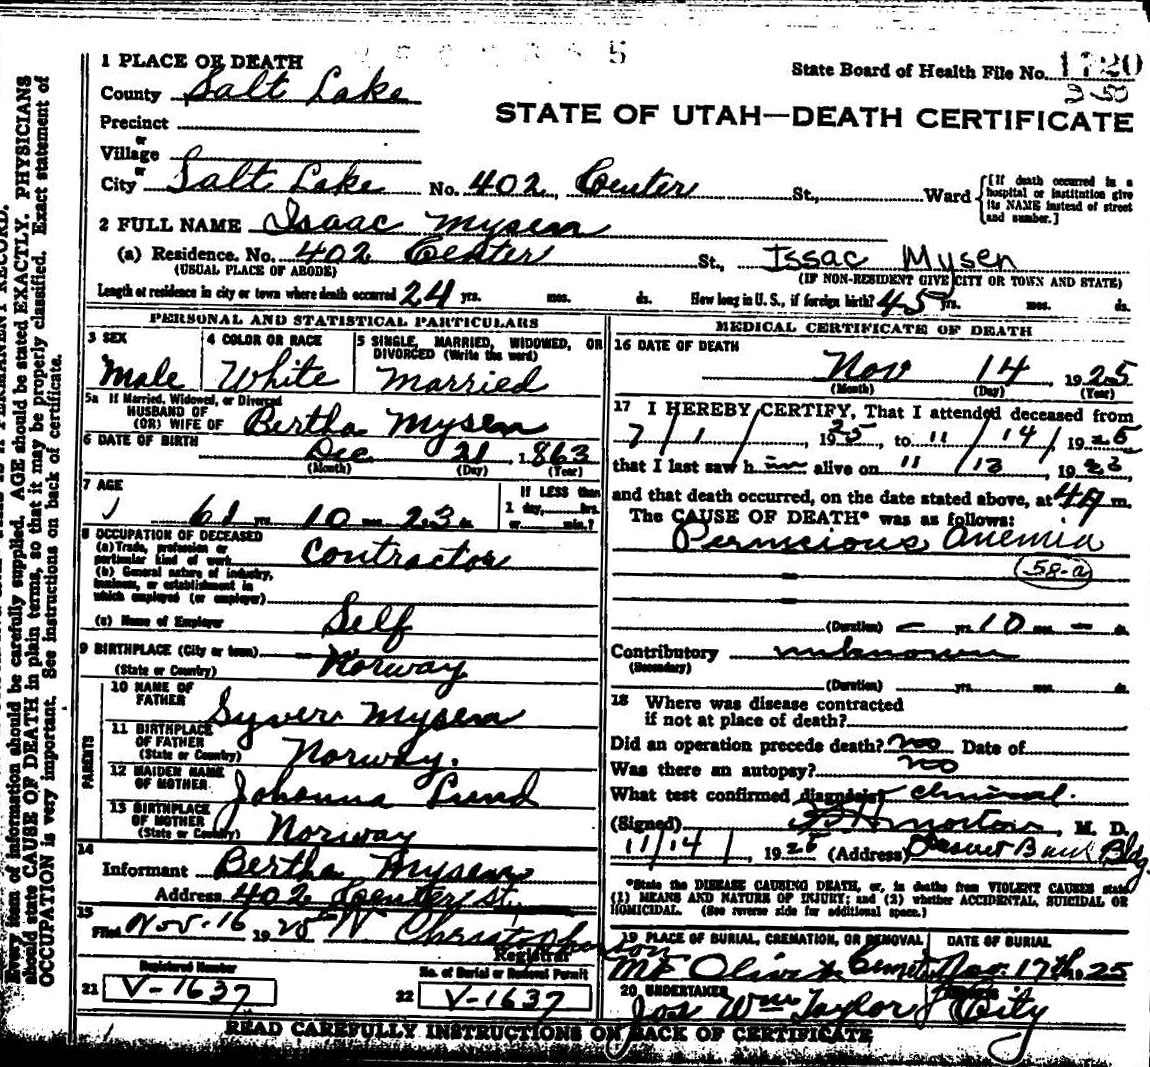 1 PLACE OF DEATH
State Board of Health File No. 1720
County Salt Lake
STATE OF UTAH—DEATH CERTIFICATE
Precinct
or
Village
or
City Salt Lake No. 402 Center St., Ward
[If death occurred in a hospital or institution give its NAME instead of street and number.]
2 FULL NAME Isaac Mysen
(a) Residence. No. 402 Center St., Issac Mysen
(USUAL PLACE OF ABODE) (IF NON-RESIDENT GIVE CITY OR TOWN AND STATE)
Length of residence in city or town where death occurred 24 yrs. mos. ds. How long in U. S., if foreign birth? 45 yrs. mos. ds.
PERSONAL AND STATISTICAL PARTICULARS
3 SEX
Male
4 COLOR OR RACE
White
5 SINGLE, MARRIED, WIDOWED, OR
DIVORCED (Write the word)
Married
5a If Married, Widowed, or Divorced
HUSBAND OF
(OR) WIFE OF Bertha Mysen
6 DATE OF BIRTH Dec 21 1863
(Month) (Day) (Year)
7 AGE
61 yrs. 10 mos. 23 ds.
If LESS than
1 day, hrs.
or min.?
8 OCCUPATION OF DECEASED
(a) Trade, profession or
particular kind of work Contractor
(b) General nature of industry,
business, or establishment in
which employed (or employer)
(c) Name of Employer Self
9 BIRTHPLACE (City or town)
(State or Country) Norway
PARENTS
10 NAME OF
FATHER Syver Mysen
11 BIRTHPLACE
OF FATHER
(State or Country) Norway.
12 MAIDEN NAME
OF MOTHER Johanna Lund
13 BIRTHPLACE
OF MOTHER
(State or Country) Norway
14
Informant Bertha Mysen
Address 402 Center St.
15
Filed Nov-16 1925 W Christopherson
Registrar
Registered Number
21 V-1637
No. of Burial or Removal Permit
22 V-1637
MEDICAL CERTIFICATE OF DEATH
16 DATE OF DEATH
Nov 14, 1925
(Month) (Day) (Year)
17 I HEREBY CERTIFY, That I attended deceased from
7/1/, 1925, to 11/14/1925
that I last saw him alive on 11/13, 19
and that death occurred, on the date stated above, at m.
The CAUSE OF DEATH* was as follows:
Pernicious Anemia
58-a
(Duration) — yrs. 10 mos. — ds.
Contributory unknown
(Secondary)
(Duration) yrs. mos. ds.
18 Where was disease contracted
if not at place of death?
Did an operation precede death? no Date of
Was there an autopsy? no
What test confirmed diagnosis? Clinical.
(Signed) Morton, M. D.
11/14/, 1925 (Address) Bank Bldg
*State the DISEASE CAUSING DEATH, or, in deaths from VIOLENT CAUSES state
(1) MEANS AND NATURE OF INJURY; and (2) whether ACCIDENTAL, SUICIDAL OR
HOMICIDAL. (See reverse side for additional space.)
19 PLACE OF BURIAL, CREMATION, OR REMOVAL
Mt Olivet Cemet
DATE OF BURIAL
Nov. 17th 25
20 UNDERTAKER
Jos Wm Taylor City
READ CAREFULLY INSTRUCTIONS ON BACK OF CERTIFICATE
Every item of information should be carefully supplied. AGE should be stated EXACTLY. PHYSICIANS
should state CAUSE OF DEATH in plain terms, so that it may be properly classified. Exact statement of
OCCUPATION is very important. See instructions on back of certificate.